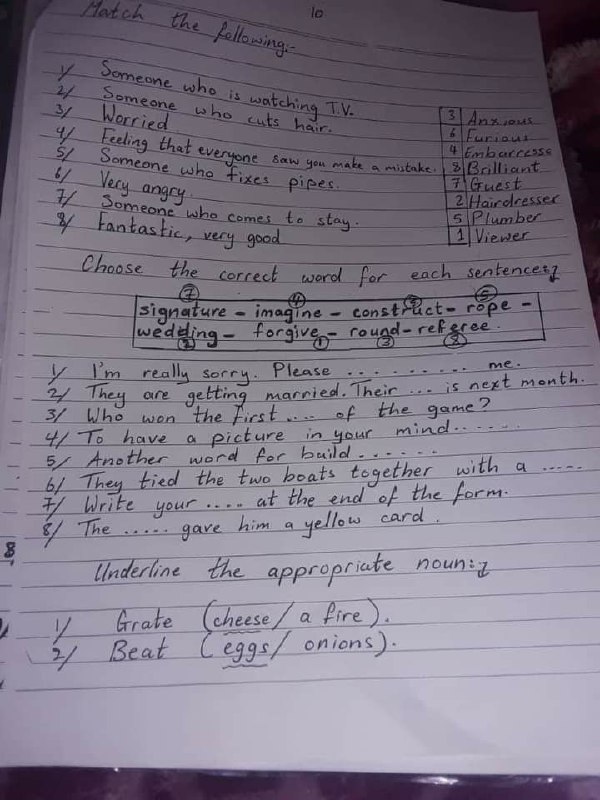 10
Match the following:-
1/ Someone who is watching T.V.
2/ Someone who cuts hair.
3/ Worried
4/ Feeling that everyone saw you make a mistake.
5/ Someone who fixes pipes.
6/ Very angry.
7/ Someone who comes to stay.
8/ Fantastic, very good
3 Anxious
6 Furious
4 Embarresse
8 Brilliant
7 Guest
2 Hairdresser
5 Plumber
1 Viewer
Choose the correct word for each sentence:
7 4 5
signature - imagine - construct - rope -
wedding - forgive - round - referee.
2 1 3 8
1/ I'm really sorry. Please .......... me.
2/ They are getting married. Their ... is next month.
3/ Who won the first .... of the game?
4/ To have a picture in your mind......
5/ Another word for build ......
6/ They tied the two boats together with a .....
7/ Write your .... at the end of the form.
8/ The ..... gave him a yellow card.
8
Underline the appropriate noun:
1/ Grate (cheese / a fire).
2/ Beat (eggs / onions).